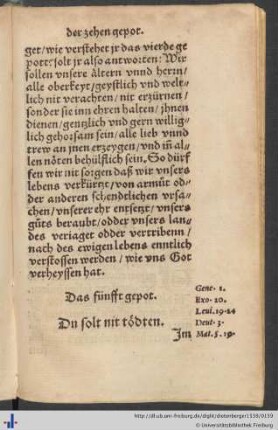 der zehen gepot.
get/wie verstehet jr das vierde ge
pott: solt jr also antworten: Wir
sollen vnsere ältern vnnd herrn/
alle oberkeyt/geystlich vnd welt-
lich nit verachten/nit erzürnen/
sonder sie inn ehren halten/jhnen
dienen/gentzlich vnd gern willig-
lich gehorsam sein/alle lieb vnnd
trew an jnen erzeygen/vnd iñ al-
len nöten behülfflich sein. So dürf
fen wir nit sorgen daß wir vnsers
lebens verkürtzt/von armůt od-
der anderen schendtlichen vrsa-
chen/vnserer ehr entsetzt/vnsers
gůts beraubt/odder vnsers lan-
des veriaget odder vertribenn/
nach des ewigen lebens enntlich
verstossen werden/wie vns Got
verheyssen hat.
Das fünfft gepot.
Du solt nit tödten.
Gene. 1.
Exo. 20.
Leui. 19. 24
Deut. 5.
Mat. 5. 19.
Im
http://dl.ub.uni-freiburg.de/diglit/dietenberger1539/0139
© Universitätsbibliothek Freiburg